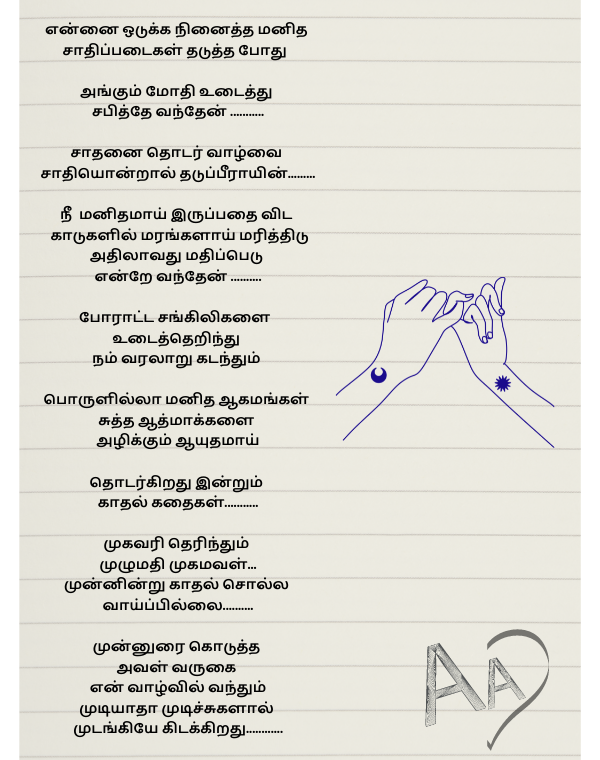 என்னை ஒடுக்க நினைத்த மனித
சாதிப்படைகள் தடுத்த போது
அங்கும் மோதி உடைத்து
சபித்தே வந்தேன் ...........
சாதனை தொடர் வாழ்வை
சாதியொன்றால் தடுப்பீராயின்.........
நீ மனிதமாய் இருப்பதை விட
காடுகளில் மரங்களாய் மரித்திடு
அதிலாவது மதிப்பெடு
என்றே வந்தேன் ..........
போராட்ட சங்கிலிகளை
உடைத்தெறிந்து
நம் வரலாறு கடந்தும்
பொருளில்லா மனித ஆகமங்கள்
சுத்த ஆத்மாக்களை
அழிக்கும் ஆயுதமாய்
தொடர்கிறது இன்றும்
காதல் கதைகள்...........
முகவரி தெரிந்தும்
முழுமதி முகமவள்...
முன்னின்று காதல் சொல்ல
வாய்ப்பில்லை..........
முன்னுரை கொடுத்த
அவள் வருகை
என் வாழ்வில் வந்தும்
முடியாதா முடிச்சுகளால்
முடங்கியே கிடக்கிறது............
AA